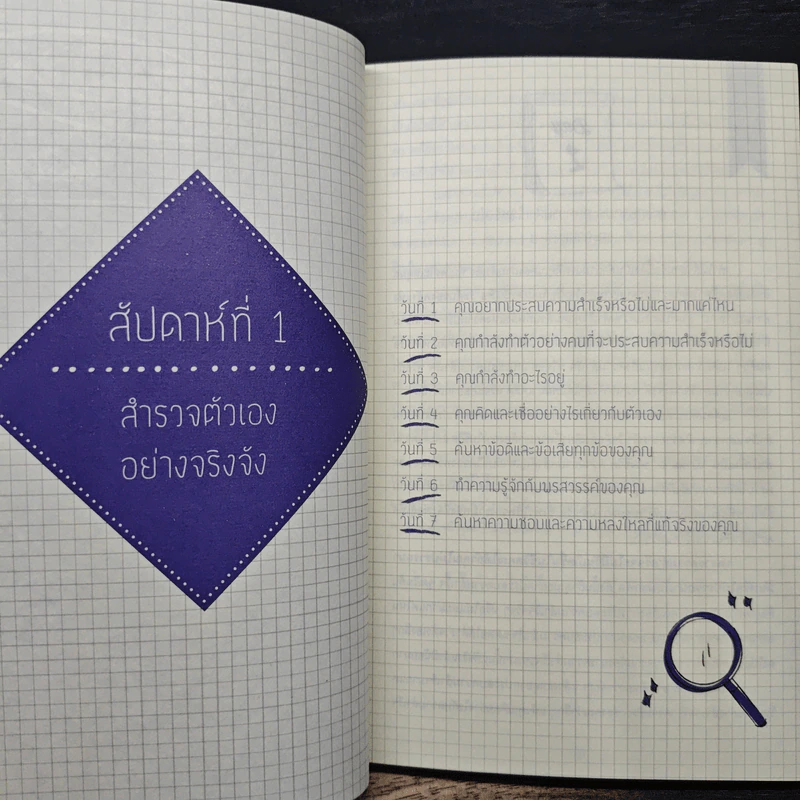 สัปดาห์ที่ 1
สำรวจตัวเอง
อย่างจริงจัง
วันที่ 1 คุณอยากประสบความสำเร็จหรือไม่และมากแค่ไหน
วันที่ 2 คุณกำลังทำตัวอย่างคนที่จะประสบความสำเร็จหรือไม่
วันที่ 3 คุณกำลังทำอะไรอยู่
วันที่ 4 คุณคิดและเชื่ออย่างไรเกี่ยวกับตัวเอง
วันที่ 5 ค้นหาข้อดีและข้อเสียทุกข้อของคุณ
วันที่ 6 ทำความรู้จักกับพรสวรรค์ของคุณ
วันที่ 7 ค้นหาความชอบและความหลงใหลที่แท้จริงของคุณ